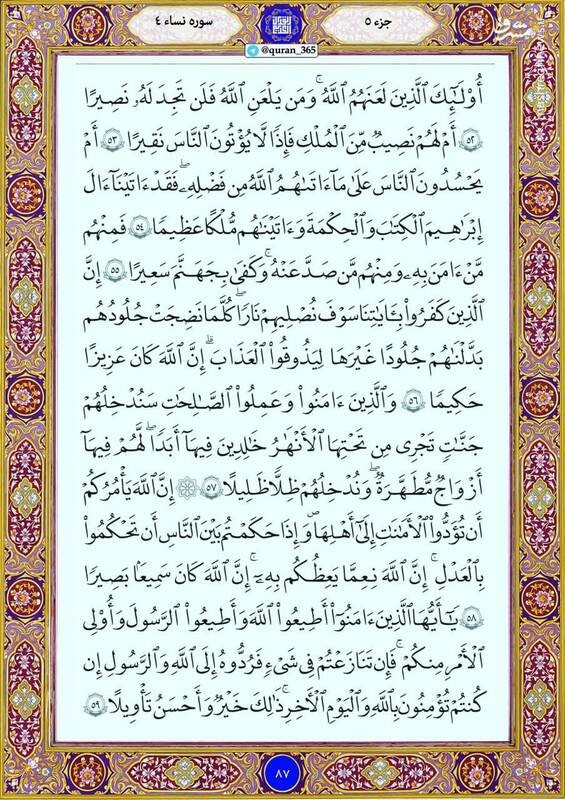 جزء ۵
سوره نساء ٤
@quran_365
أُوْلَـٰٓئِكَ ٱلَّذِينَ لَعَنَهُمُ ٱللَّهُ ۖ وَمَن يَلْعَنِ ٱللَّهُ فَلَن تَجِدَ لَهُۥ نَصِيرًا
۝٥٢ أَمْ لَهُمْ نَصِيبٌ مِّنَ ٱلْمُلْكِ فَإِذًا لَّا يُؤْتُونَ ٱلنَّاسَ نَقِيرًا ۝٥٣ أَمْ
يَحْسُدُونَ ٱلنَّاسَ عَلَىٰ مَآ ءَاتَىٰهُمُ ٱللَّهُ مِن فَضْلِهِۦ ۖ فَقَدْ ءَاتَيْنَآ ءَالَ
إِبْرَٰهِيمَ ٱلْكِتَٰبَ وَٱلْحِكْمَةَ وَءَاتَيْنَٰهُم مُّلْكًا عَظِيمًا ۝٥٤ فَمِنْهُم
مَّنْ ءَامَنَ بِهِۦ وَمِنْهُم مَّن صَدَّ عَنْهُ ۚ وَكَفَىٰ بِجَهَنَّمَ سَعِيرًا ۝٥٥ إِنَّ
ٱلَّذِينَ كَفَرُواْ بِـَٔايَٰتِنَا سَوْفَ نُصْلِيهِمْ نَارًا كُلَّمَا نَضِجَتْ جُلُودُهُم
بَدَّلْنَٰهُمْ جُلُودًا غَيْرَهَا لِيَذُوقُواْ ٱلْعَذَابَ ۗ إِنَّ ٱللَّهَ كَانَ عَزِيزًا
حَكِيمًا ۝٥٦ وَٱلَّذِينَ ءَامَنُواْ وَعَمِلُواْ ٱلصَّٰلِحَٰتِ سَنُدْخِلُهُمْ
جَنَّٰتٍ تَجْرِى مِن تَحْتِهَا ٱلْأَنْهَٰرُ خَٰلِدِينَ فِيهَآ أَبَدًا ۖ لَّهُمْ فِيهَآ
أَزْوَٰجٌ مُّطَهَّرَةٌ ۖ وَنُدْخِلُهُمْ ظِلًّا ظَلِيلًا ۝٥٧ ۞ إِنَّ ٱللَّهَ يَأْمُرُكُمْ
أَن تُؤَدُّواْ ٱلْأَمَٰنَٰتِ إِلَىٰٓ أَهْلِهَا وَإِذَا حَكَمْتُم بَيْنَ ٱلنَّاسِ أَن تَحْكُمُواْ
بِٱلْعَدْلِ ۚ إِنَّ ٱللَّهَ نِعِمَّا يَعِظُكُم بِهِۦٓ ۗ إِنَّ ٱللَّهَ كَانَ سَمِيعًۢا بَصِيرًا
۝٥٨ يَـٰٓأَيُّهَا ٱلَّذِينَ ءَامَنُوٓاْ أَطِيعُواْ ٱللَّهَ وَأَطِيعُواْ ٱلرَّسُولَ وَأُوْلِى
ٱلْأَمْرِ مِنكُمْ ۖ فَإِن تَنَٰزَعْتُمْ فِى شَىْءٍ فَرُدُّوهُ إِلَى ٱللَّهِ وَٱلرَّسُولِ إِن
كُنتُمْ تُؤْمِنُونَ بِٱللَّهِ وَٱلْيَوْمِ ٱلْـَٔاخِرِ ۚ ذَٰلِكَ خَيْرٌ وَأَحْسَنُ تَأْوِيلًا ۝٥٩
۸۷